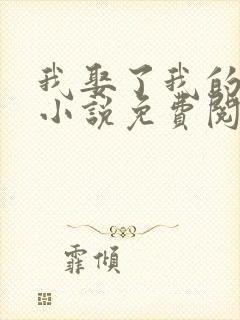 我娶了我的
小说免費閱
霏傾